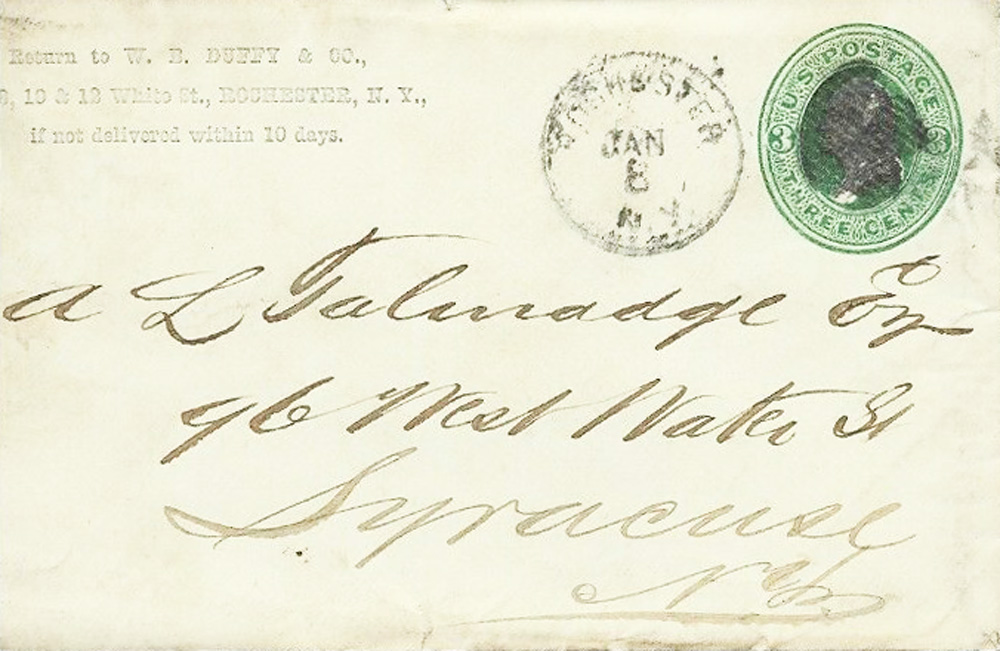 Return to W. B. DUFFY & CO.,
8, 10 & 12 White St., ROCHESTER, N. Y.,
if not delivered within 10 days.
ROCHESTER
JAN
8
N.Y.
U.S. POSTAGE
3 3
THREE CENTS
A L Talmadge Esq
96 West Water St
Syracuse
N Y